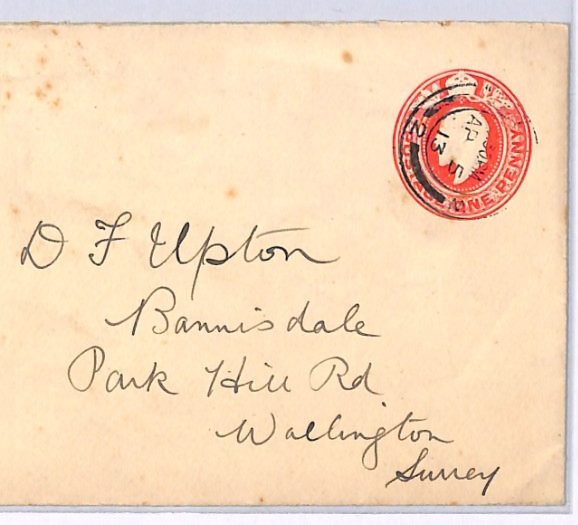 POSTAGE ONE PENNY
AP 5
13
2
D F Upton
Bannisdale
Park Hill Rd
Wallington
Surrey